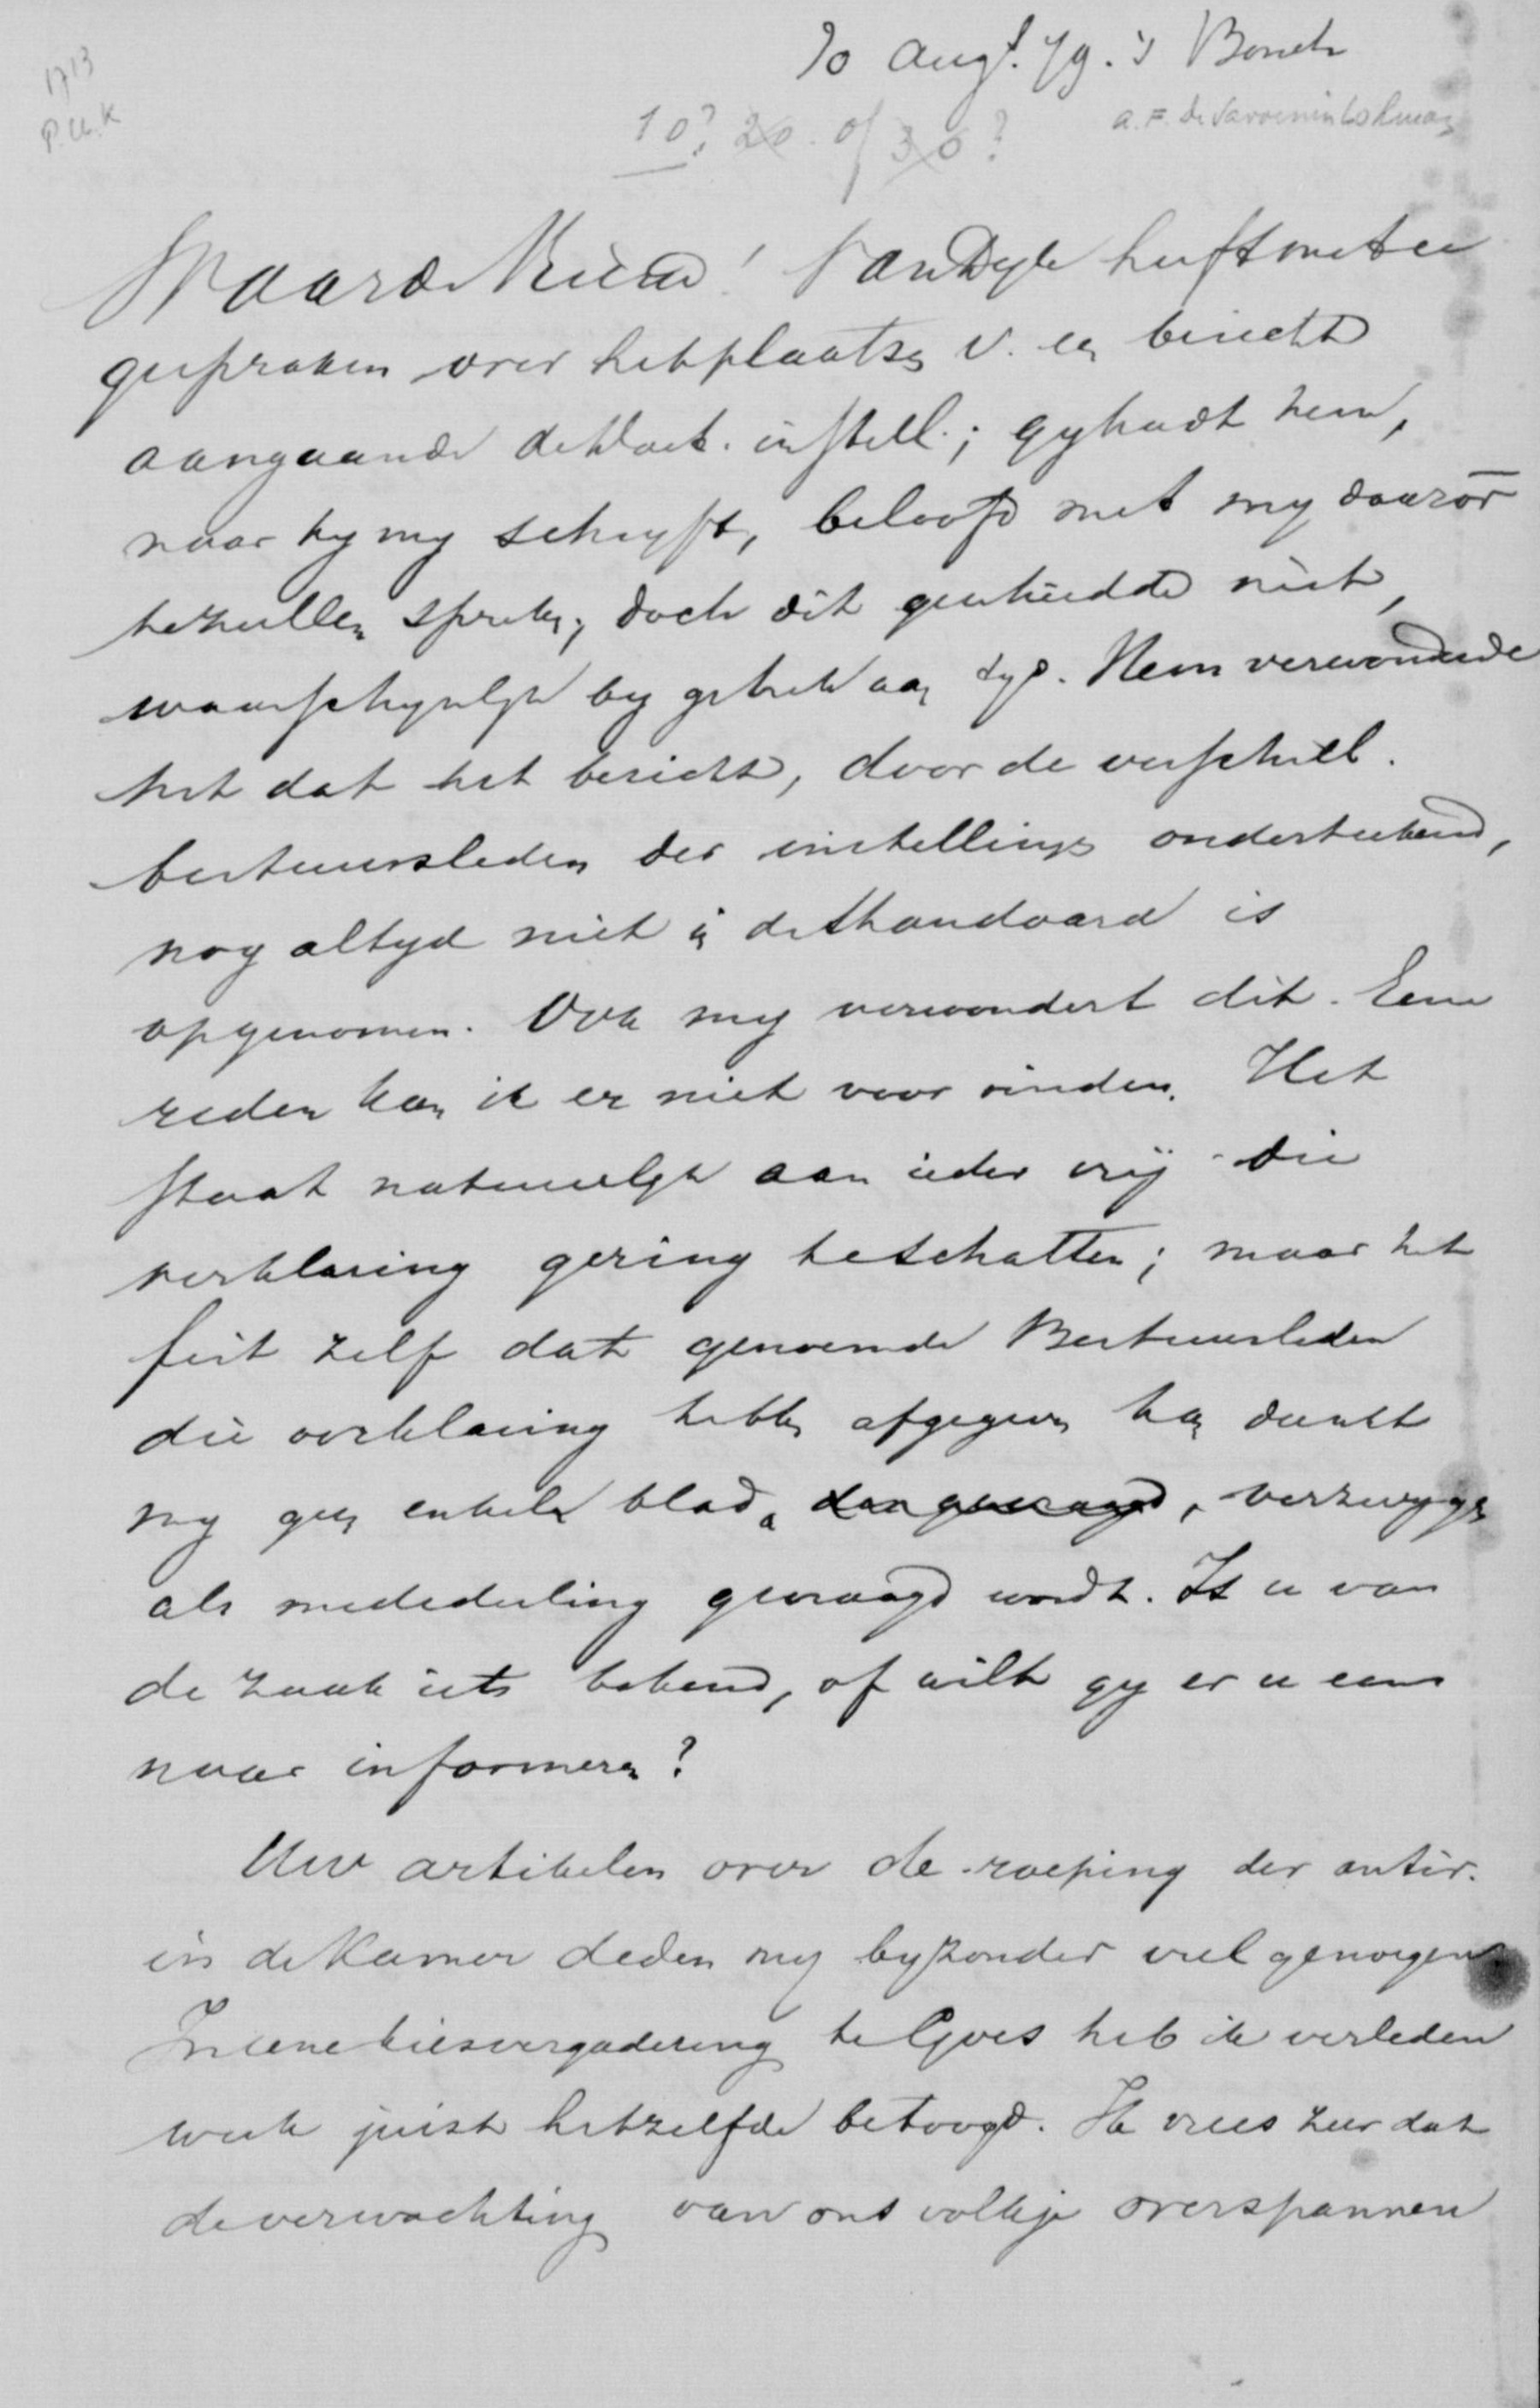 1713
P.U.K
10 Augt. 79. 's Bosch
10? 20. of 30?
A. F. de Savornin Lohman
Waarde Vriend! Van Dyk heeft met u
gesproken over het plaatsen v. een bericht
aangaande de Doet. instell.; gy hadt hem,
naar hy my schryft, beloofd met my daarov̅
te zullen spreken; doch dit geschiedde niet,
waarschynlyk by gebrek aan tyd. Hem verwonderde
het dat het bericht, door de verschill.
bestuursleden der instellings onderteekend,
nog altyd niet in de Standaard is
opgenomen. Ook my verwondert dit. Eene
reden kan ik er niet voor vinden. Het
staat natuurlyk aan ieder vrij die
verklaring gering te schatten; maar het
feit zelf dat genoemde Bestuursleden
die verklaring hebben afgegeven kan dunkt
my geen enkel blad, verzwygen
als mededeeling gevraagd wordt. Is u van
de zaak iets bekend, of wilt gy er u eens
naar informeren?
Uw artikelen over de roeping der antir.
in de Kamer deden my byzonder veel genoegen
In eene kiesvergadering te Goes heb ik verleden
week juist hetzelfde betoogd. Ik vrees zeer dat
de verwachting van ons volkje overspannen